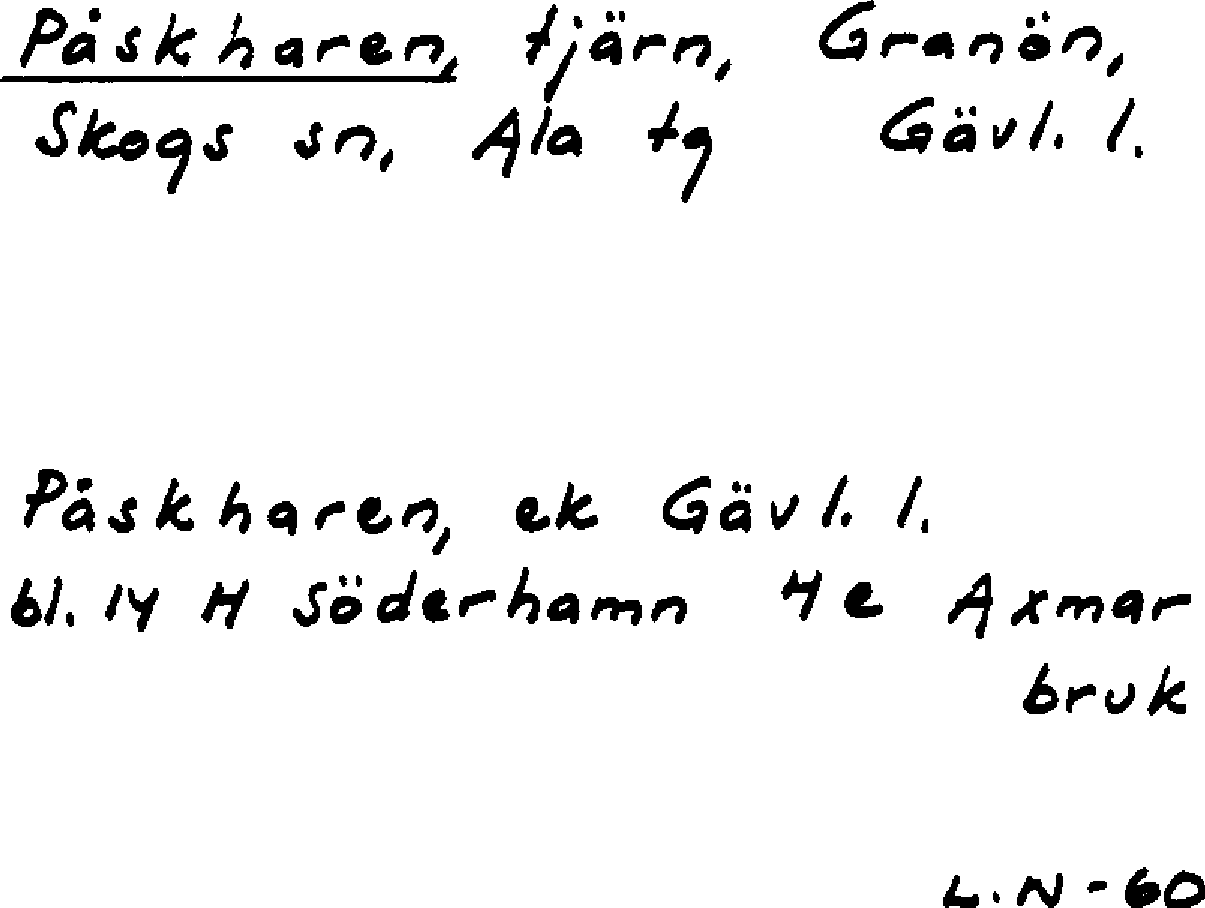 Påskharen, tjärn, Granön,
Skogs sn, Ala tg Gävl. l.
Påskharen, ek Gävl. l.
bl. 14 H Söderhamn 4e Axmar
bruk
L.N-60